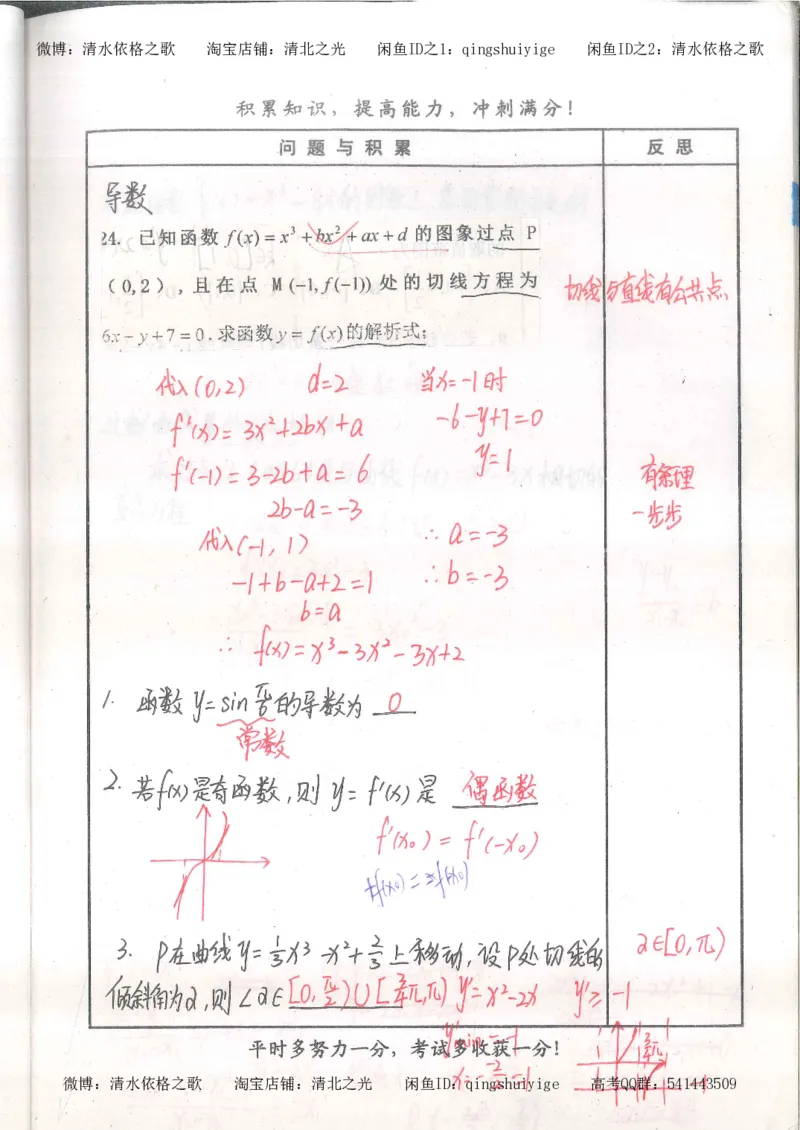 微博：清水依格之歌 淘宝店铺：清北之光 闲鱼ID之1：qingshuiyige 闲鱼ID之2：清水依格之歌
积累知识，提高能力，冲刺满分！
问题与积累 反思
导数
24. 已知函数 f(x)=x³+bx²+ax+d 的图象过点 P
(0,2)，且在点 M(-1,f(-1)) 处的切线方程为
切线与直线有公共点
6x-y+7=0.求函数y=f(x)的解析式；
代入(0,2) d=2 当x=-1时
f'(x)=3x²+2bx+a -6-y+7=0
f'(-1)=3-2b+a=6 y=1
有条理
2b-a=-3
一步步
代入(-1,1) ∴a=-3
-1+b-a+2=1 ∴b=-3
b=a
∴f(x)=x³-3x²-3x+2
1. 函数y=sin π/6 的导数为 0
常数
2. 若f(x)是奇函数，则y=f'(x)是 偶函数
f'(x₀)=f'(-x₀)
3. P在曲线y=1/3x³-x²+2/3上移动，设P处切线的
α∈[0,π)
倾斜角为α，则∠α∈[0,π/2)∪[3/4π,π) y'=x²-2x y'≥-1
y'min=-1
3/4π
平时多努力一分，考试多收获一分！
微博：清水依格之歌 淘宝店铺：清北之光 闲鱼ID：qingshuiyige 高考QQ群：541443509